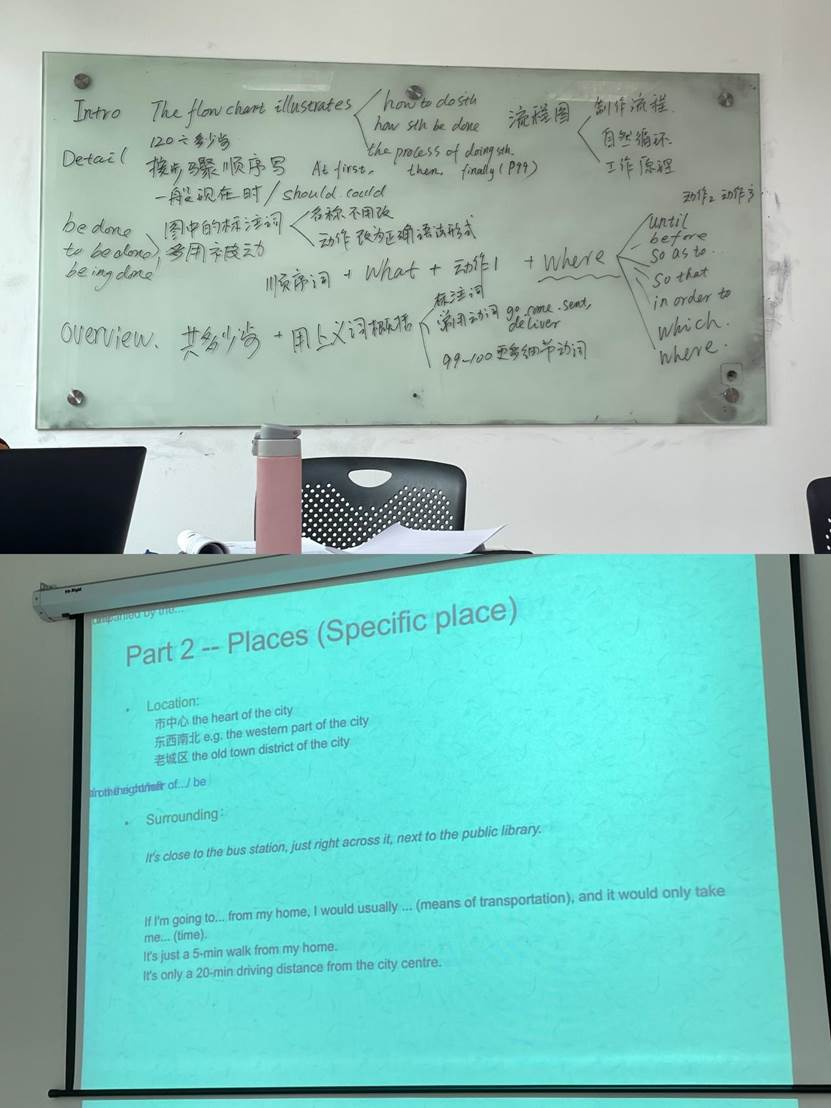 Intro The flow chart illustrates
how to do sth
how sth be done
the process of doing sth.
流程图
制作流程.
自然循环
工作原理
Detail
按步骤顺序写 At first, then, finally (P99)
一般现在时 / should could
be done
to be done
being done
图中的标注词
多用被动
名称不用改
动作改为正确语法形式
顺序词 + what + 动作1 + where
动作2 动作3
until
before
so as to
so that
in order to
which.
where.
overview. 共多少步 + 用上义词概括
标注词
常用动词 go come. sent, deliver
99-100更多细节动词
Part 2 -- Places (Specific place)
Location:
市中心 the heart of the city
东西南北 e.g. the western part of the city
老城区 the old town district of the city
of.../ be
Surrounding:
It's close to the bus station, just right across it, next to the public library.
If I'm going to... from my home, I would usually ... (means of transportation), and it would only take
me... (time).
It's just a 5-min walk from my home.
It's only a 20-min driving distance from the city centre.